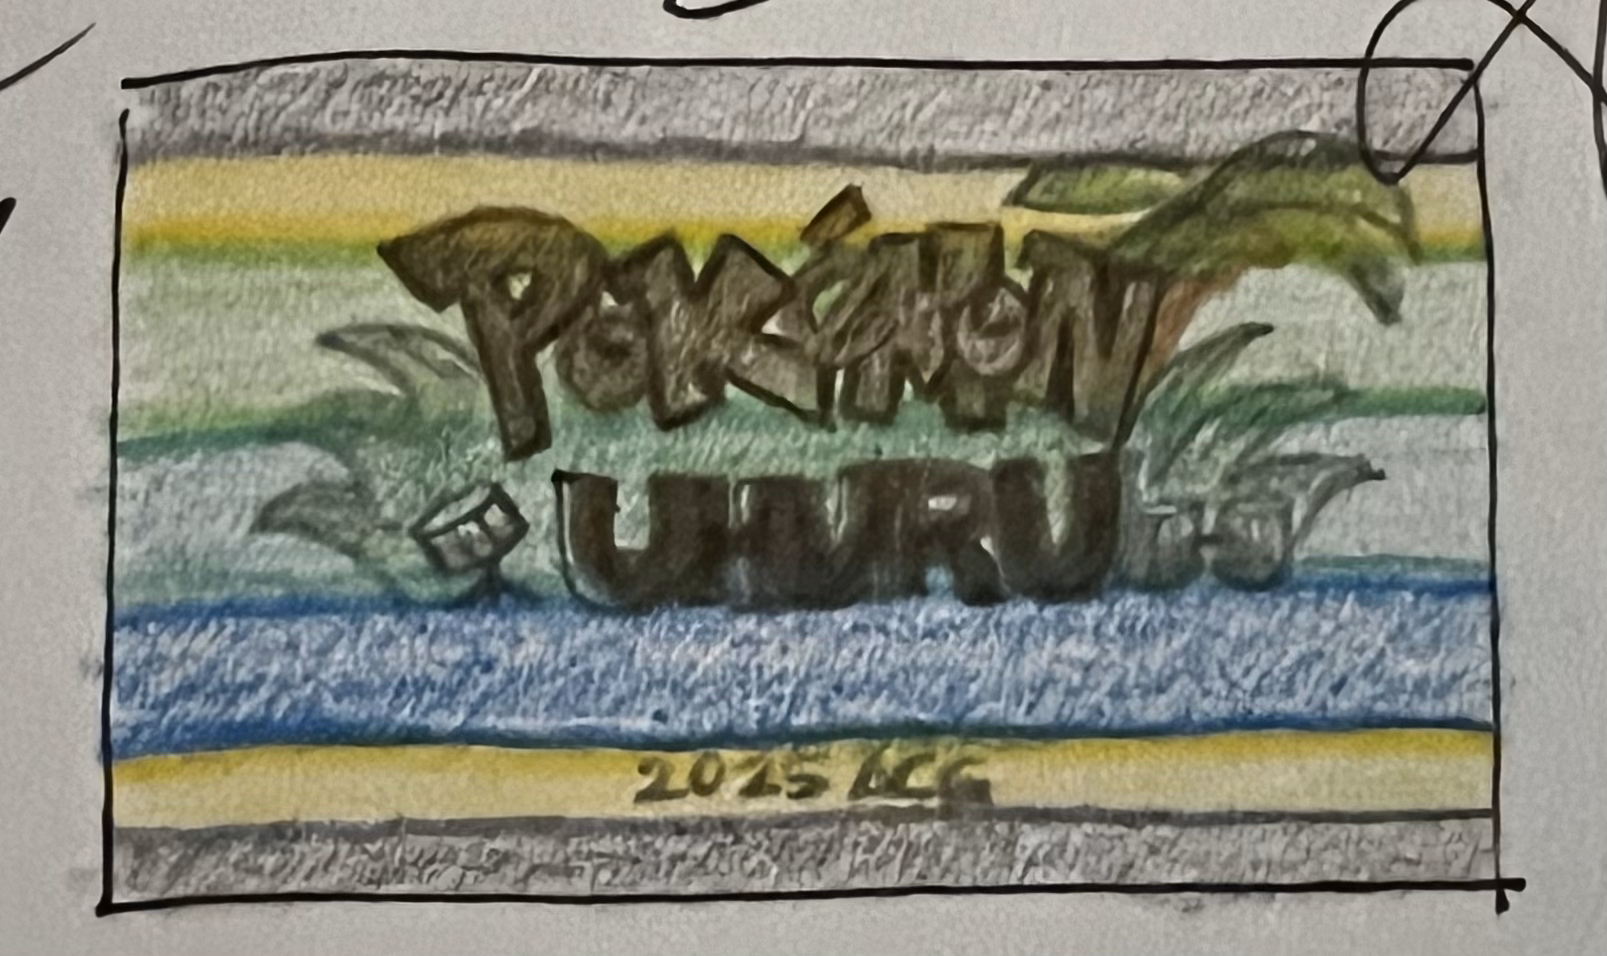 POKÉMON
UURU
2025 ACG